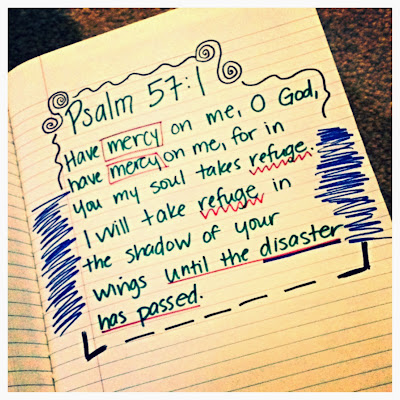 Psalm 57:1
Have mercy on me, O God,
have mercy on me, for in
you my soul takes refuge.
I will take refuge in
the shadow of your
wings until the disaster
has passed.